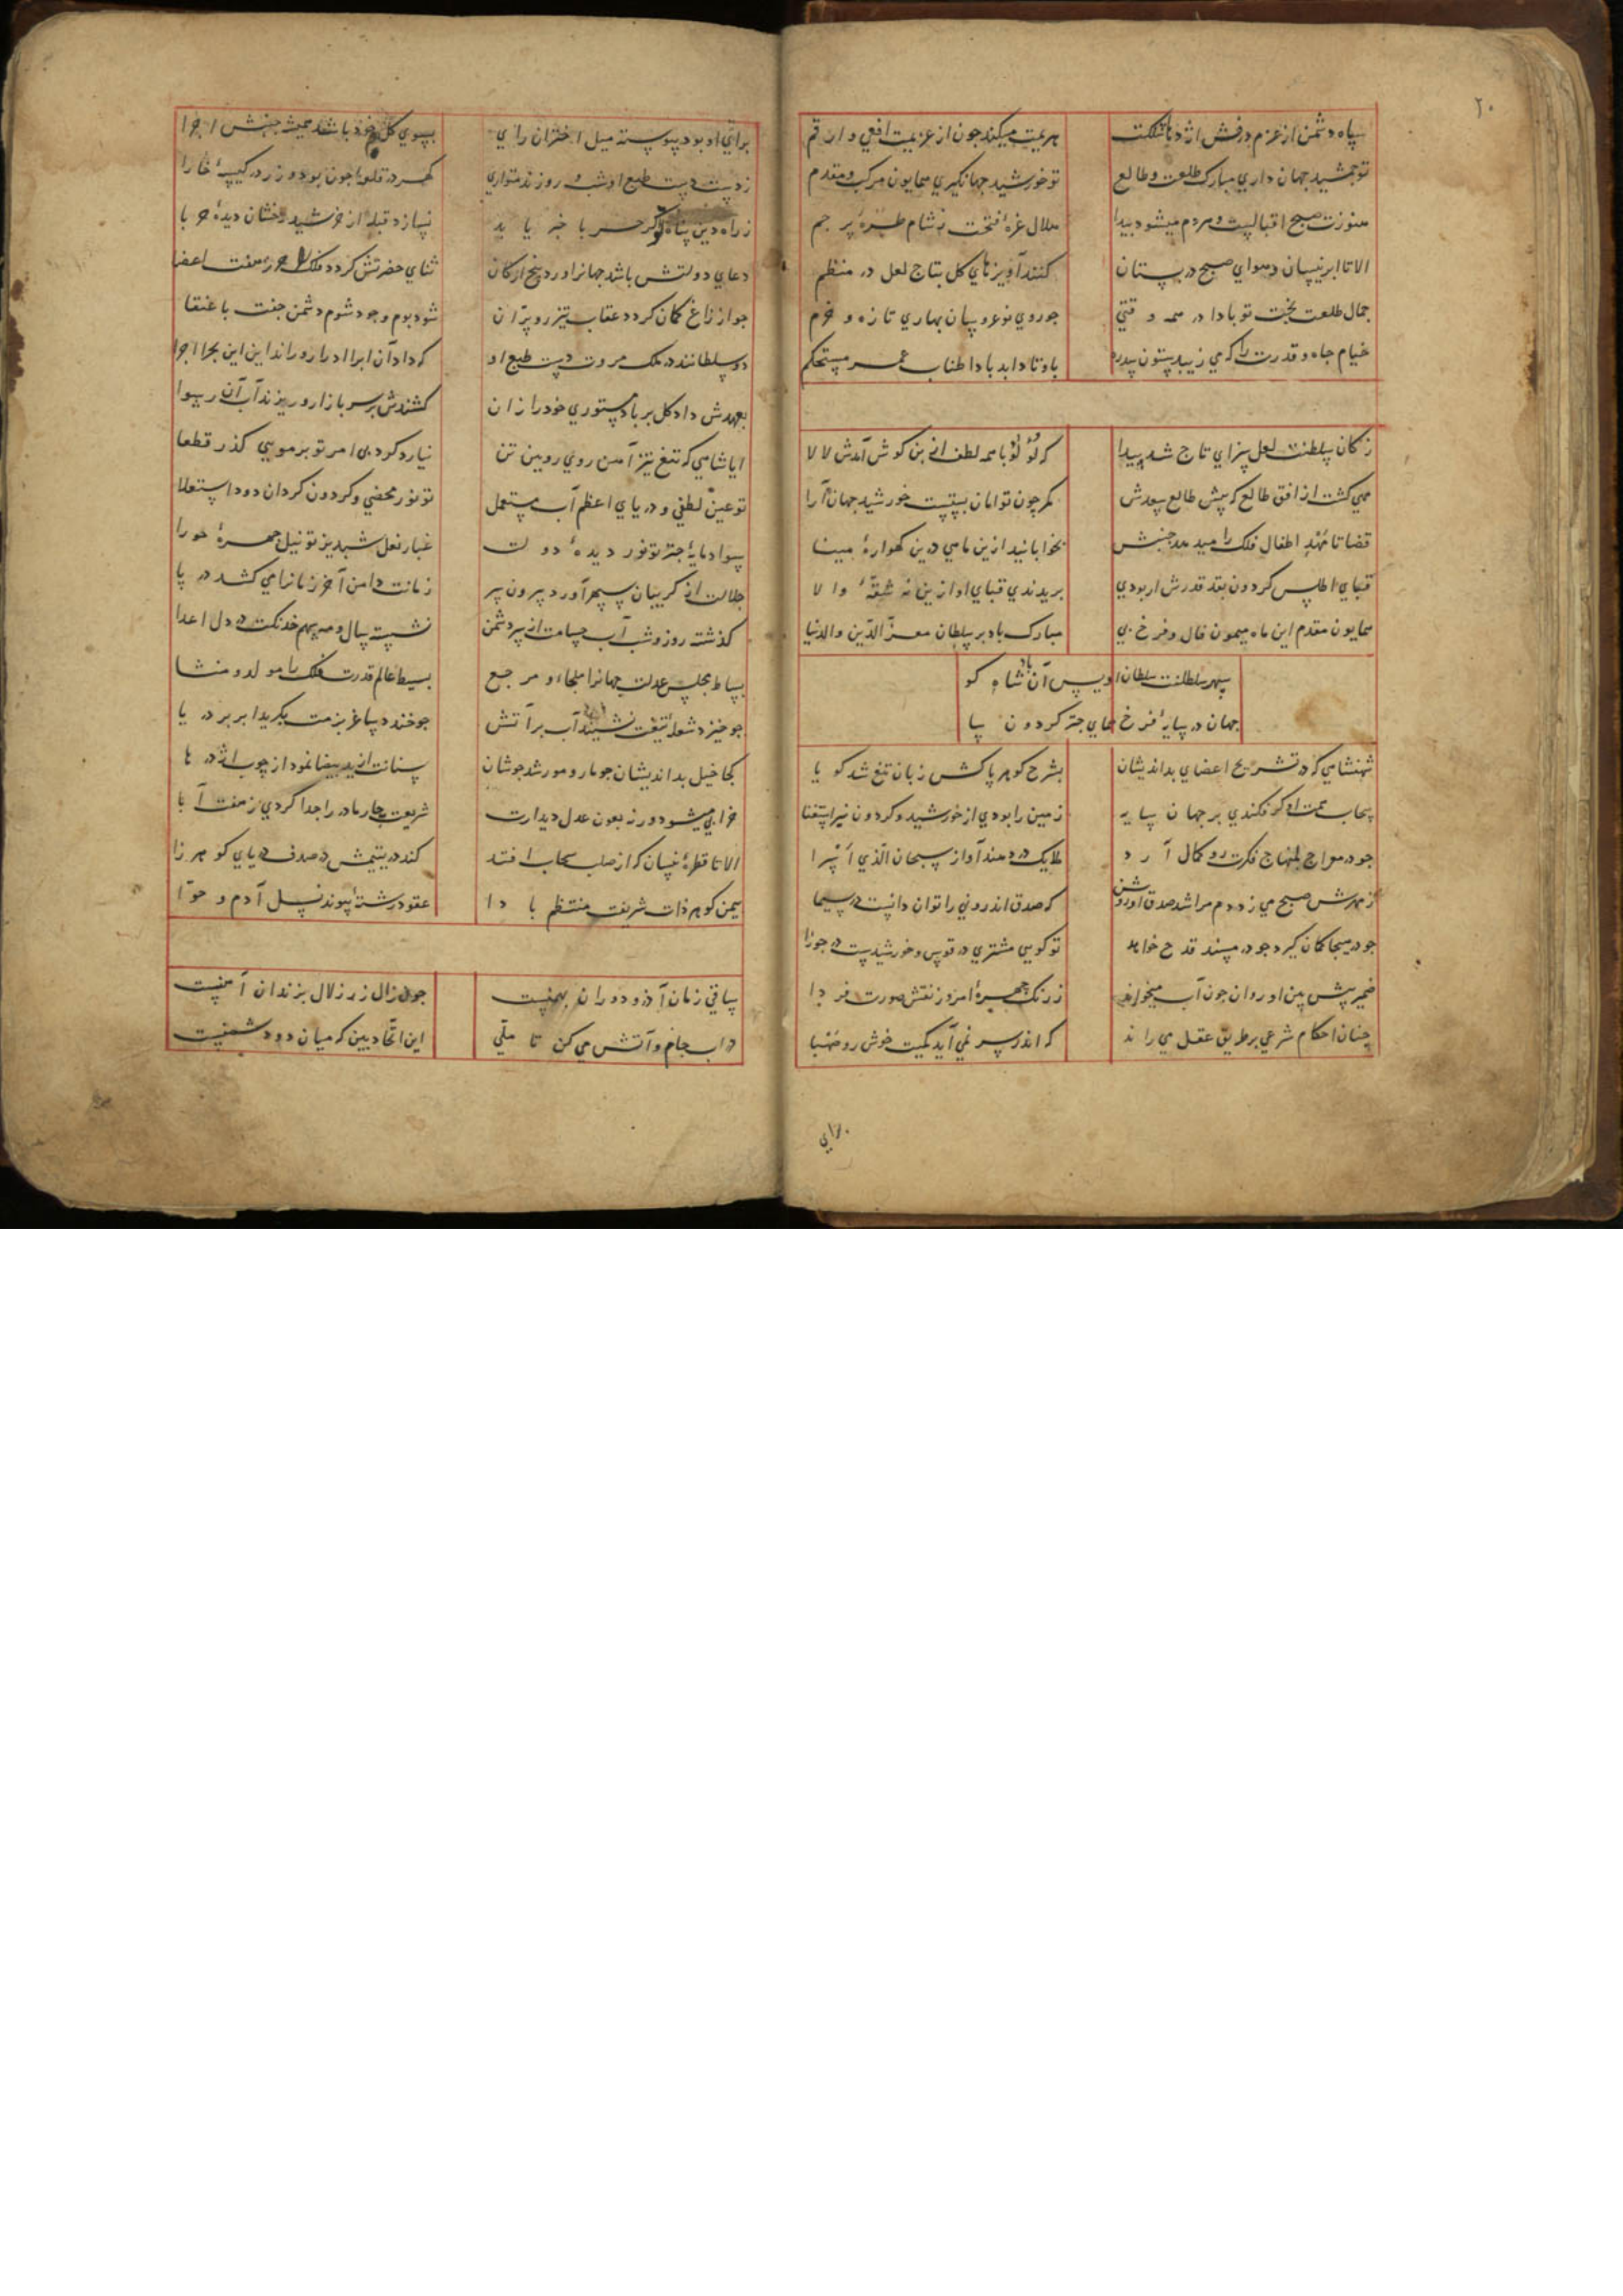 ۲۰
سپاه دشمن از عزم درفش اژدها شکلت
هزیمت میکند چون از عزیمت افعی و ارقم
تو جمشید جهان داری مبارک طلعت و طالع
تو خورشید جهانگیری همایون مرکب و مقدم
هنوزت صبح اقبالست و هر دم میشود پیدا
هلال غره فتحت ز شام طره پر خم
الا تا ابر نیسان و هوای صبح در بستان
کنند آویزهای کل بتاج لعل در منظم
جمال طلعت بخت تو بادا در همه وقتی
چو روی نوعروسان بهاری تازه و خرم
خیام جاه و قدرت را که می زیبد ستون سدره
باوتاد ابد بادا طناب عمر مستحکم
ز کان سلطنت لعل سزای تاج شد پیدا
که لؤلؤ با همه لطف از بن کوش آمدش لالا
مهی کشت از افق طالع که پیش طالع سعدش
کمر چون توامان بستست خورشید جهان آرا
قضا تا مهد اطفال فلک را میدهد جنبش
نخوابانید ازین ماهی درین کهواره مینا
قبای اطلس کردون بقد قدرش ار بودی
بریدندی قبای او ازین نه شقه والا
همایون مقدم این ماه میمون فال و فرخ پی
مبارک باد بر سلطان معز الدین والدنیا
سپهر سلطنت سلطان اویس آن شاه کو
جهان در سایه فرخ همای چتر کردون سا
شهنشاهی که در تشریح اعضای بداندیشان
بشرح کوهر پاکش زبان تیغ شد کویا
سحاب همت او کر فکندی بر جهان سایه
زمین را بودی از خورشید و کردون نیز استغنا
چو در معراج منهاج فکرت رو کمال آرد
ملایک در دهند آواز سبحان الذی اسرا
ز مهرش صبح می زد دم مرا شد صدق او روشن
که صدق اندرونی را توان دانست در سیما
چو در هیجا کمان کیرد چو در مسند قدح خواهد
تو کویی مشتری در قوس و خورشیدست در جوزا
ضمیر پیش بین او روان چون آب میخواند
ز رنک چهره امروز نقش صورت فردا
چنان احکام شرعی بر طریق عقل می راند
که اندر سر نمی آید کمیت خوش رو صهبا
برای او بود پیوسته میل اختران راي
بسوی کل خود باشد همیشه جنبش اجزا
ز دست طبع او شب و روزند متواری
کهر در قلزم چون بود و زر در کیسه خارا
ز راه دین پناه او کر حربا خبر یابد
نسازد قبله از خرشید رخشان دیده حربا
دعای دولتش باشد جهانرا ورد پنج ارکان
ثنای حضرتش کردد فلک را حرز هفت اعضا
چو از زاغ کمان کردد عقاب تیزرو پران
شود بوم وجود شوم دشمن جفت با عنقا
دو سلطانند در ملک مروت دست و طبع او
که داد آن ابر را ادرار و راند این بحر را اجرا
بعهدش داد کل بر باد مستوری خود را زان
کشندش بر سر بازار و ریزند آب آن رسوا
ایا شاهی که تیغ تیز آهن روی رویین تن
نیارد کرد بی امر تو بر مویی کذر قطعا
تو عین لطفی و دریای اعظم آب مستعمل
تو نور محضی و کردون کردان دود استعلا
سواد مایه چتر تو نور دیده دولت
غبار نعل شبدیز تو نیل چهره حورا
جلالت از کریبان سپهر آورد بیرون سر
زمانت دامن آخر زمانرا می کشد در پا
کذشته روز و شب آب حسامت از سر دشمن
نشسته سال و مه سهم خدنکت در دل اعدا
بساط مجلس عدلت جهانرا ملجاء و مرجع
بسیط عالم قدرت فلک را مولد و منشا
چو خیزد شعله تیغت نشیند آب بر آتش
چو خندد ساغر بزمت بکرید ابر بر دریا
کجا خیل بداندیشان چو مار و مور شد جوشان
سنانت از ید بیضا نمود از چوب اژدرها
خرابی میشود دور ز بعون عدل دیدارت
شریعت چار مادر را جدا کردی ز هفت آبا
الا تا قطره نیسان که از صلب سحاب افتد
کند در یتیمش در صدف دریای کوهرزا
بیمن کوهر ذات شریفت منتظم بادا
عقود رشته پیوند نسل آدم و حوا
ساقی زمان آذر و دوران بهمنست
چون زال زر زلال بزندان آهنست
در آب جام و آتش می کن تا ملی
این اتحاد بین که میان دو دشمنست